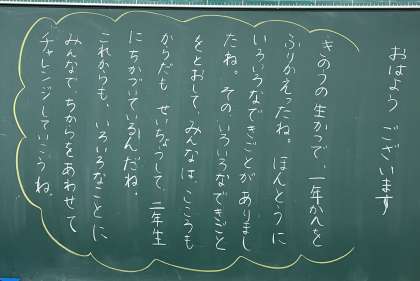 おはよう ございます
きのうの 生かつで、一年かんを
ふりかえったね。ほんとうに
いろいろなできごとが ありまし
たね。その、いろいろなできごと
をとおして、みんなは こころも
からだも せいちょうして、二年生
にちかづいているんだね。
これからも、いろいろなことに
みんなで、ちからをあわせて
チャレンジしていこうね。